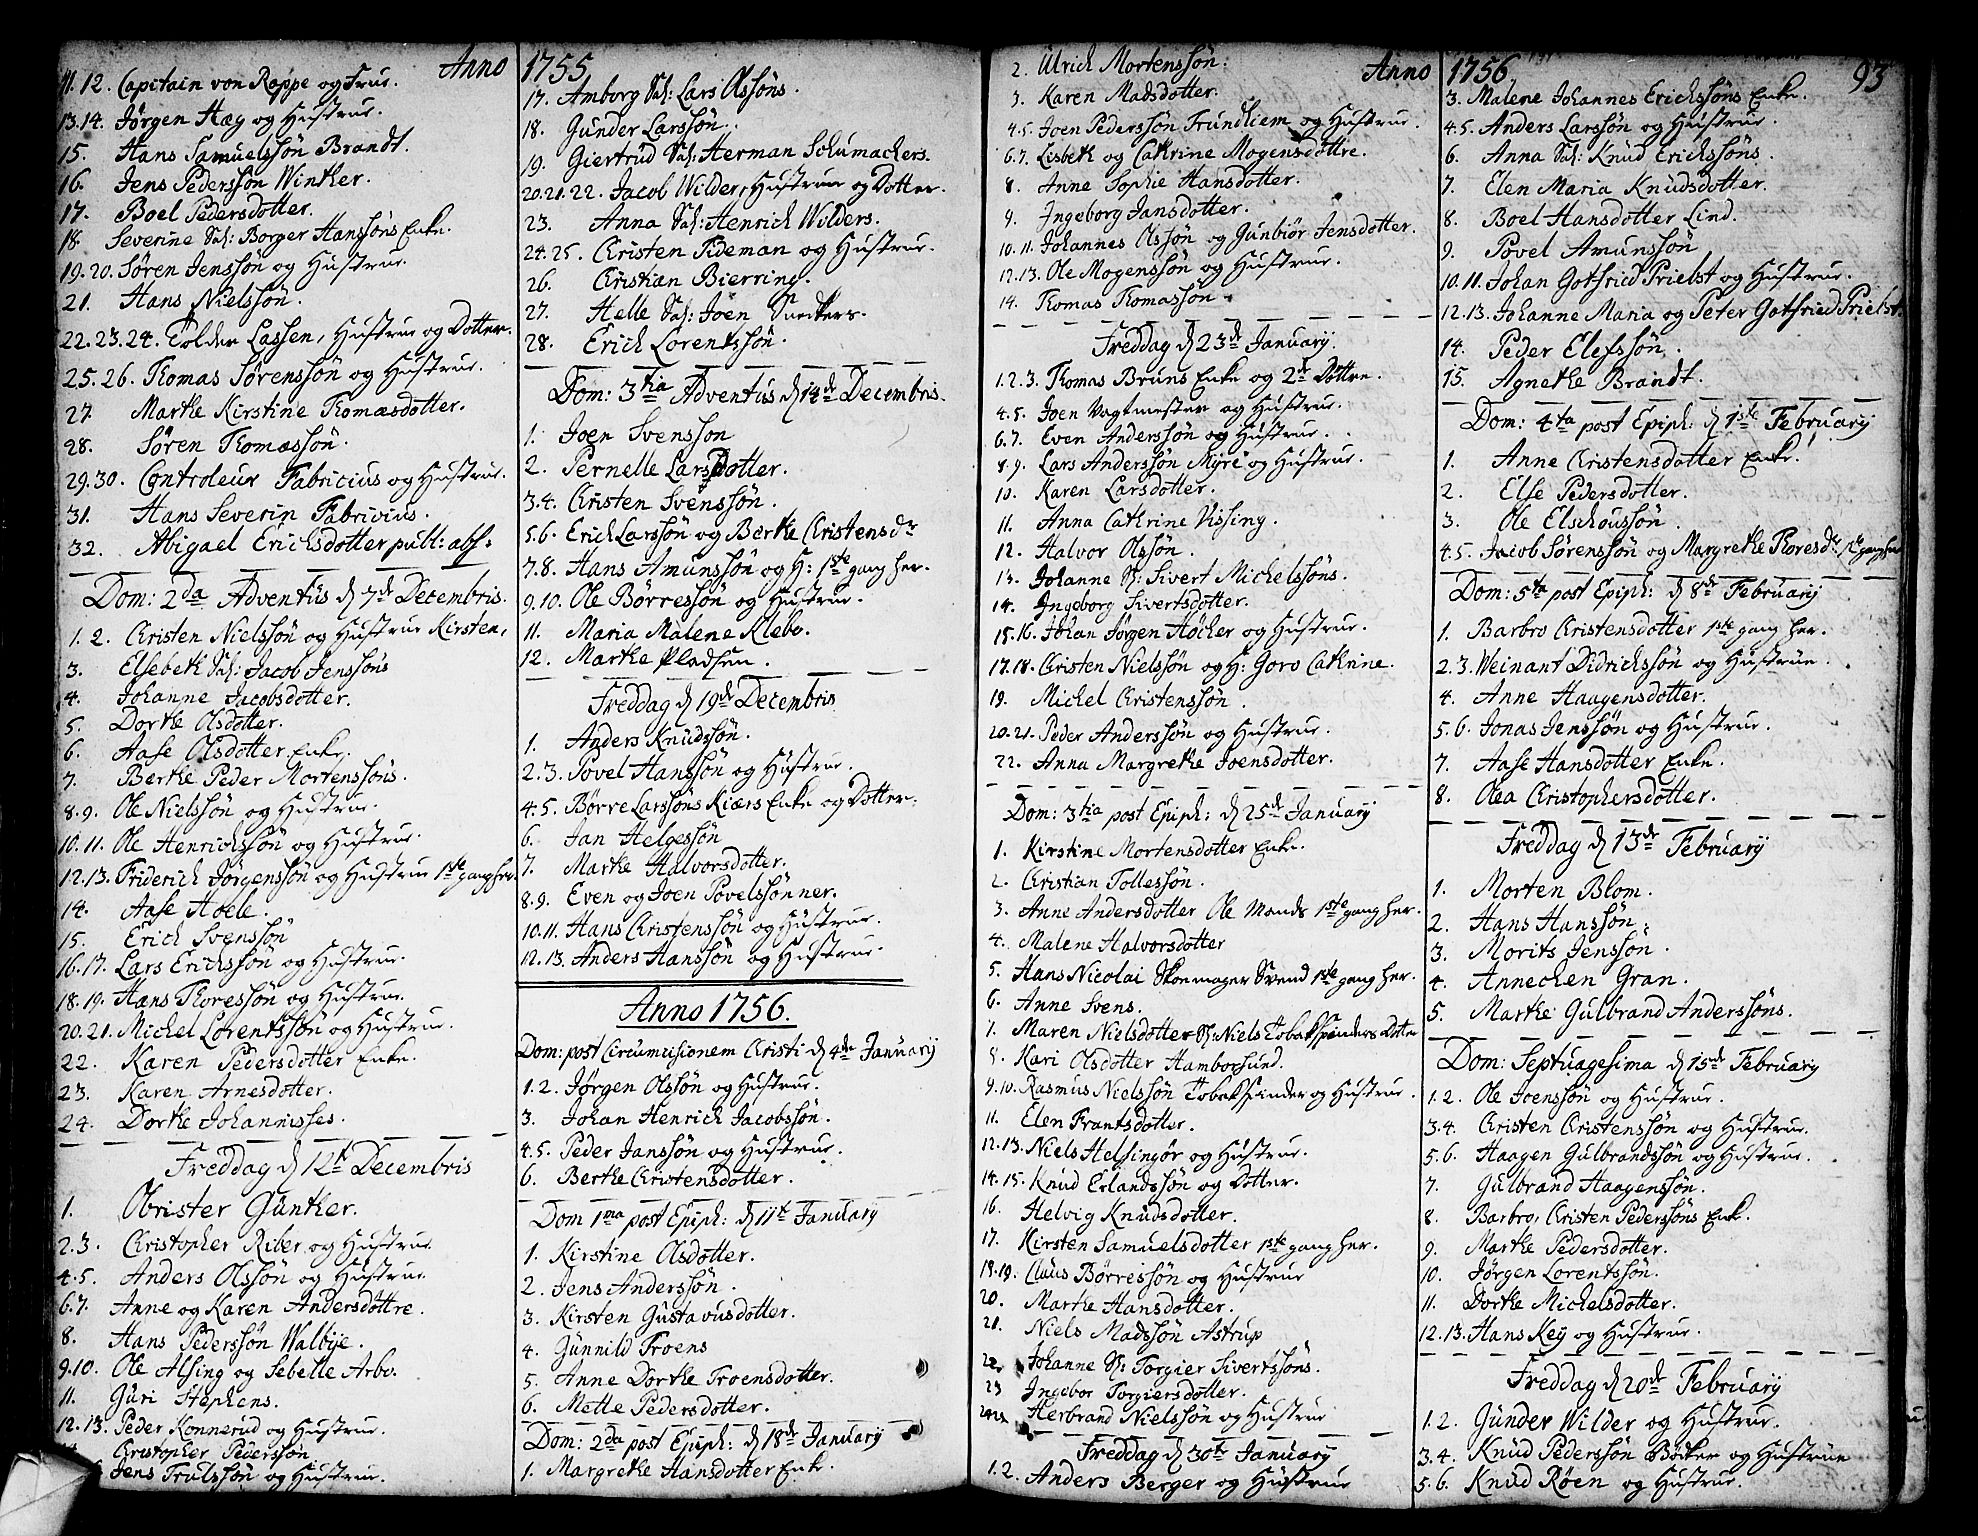 Anno
11. 12. Capitain von Rappe og Frue.
13. 14. Jørgen Hæg og Hustrue.
15. Hans Samuelssøn Brandt.
16. Jens Pederssøn Winther.
17. Boel Pedersdotter.
18. Severine Sal: Borger Hanssøns Enke.
19. 20. Søren Jenssøn og Hustrue.
21. Hans Nielssøn.
22. 23. 24. Tolder Lassen, Hustrue og Dotter.
25. 26. Thomas Sørenssøn og Hustrue.
27. Marthe Kirstine Thomæsdotter.
28. Søren Thomæssøn.
29. 30. Controleur Fabricius og Hustrue.
31. Hans Severin Fabricius.
32. Abigael Erichsdotter publ: abs:
Dom: 2da Adventus d 7de Decembris.
1. 2. Christen Nielssøn og Hustrue Kirsten.
3. Elsebeth Sal: Jacob Jenssøns
4. Johanne Jacobsdotter.
5. Dorthe Olsdotter.
6. Aase Olsdotter Enke.
7. Berthe Peder Mortenssøns.
8. 9. Ole Nielssøn og Hustrue.
10. 11. Ole Henrichssøn og Hustrue.
12. 13. Friderich Jørgenssøn og Hustrue 1ste gang her.
14. Aase Hoele.
15. Erich Svenssøn
16. 17. Lars Erichssøn og Hustrue.
18. 19. Hans Thoressøn og Hustrue.
20. 21. Michel Lorentssøn og Hustrue.
22. Karen Pedersdotter Enke.
23. Karen Arnesdotter.
24. Dorthe Johannisses.
Freddag d 12te Decembris
1. Obrister Günther.
2. 3. Christopher Riber og Hustrue.
4. 5. Anders Olssøn og Hustrue.
6. 7. Anne og Karen Andersdøttre.
8. Hans Pederssøn Walbye.
9. 10. Ole Alsing og Sebelle Arbo.
11. Guri Stephens.
12. 13. Peder Konnerud og Hustrue.
Christopher Pederssøn
Jens Trulssøn og Hustrue.
1755
17. Amborg Sal: Lars Olssøns.
18. Gunder Larssøn.
19. Giertrud Sal: Herman Schumachers.
20. 21. 22. Jacob Wilder, Hustrue og Dotter.
23. Anna Sal: Henrich Wilders.
24. 25. Christen Tideman og Hustrue.
26. Christian Bierring.
27. Helle Sal: Joen Snedkers.
28. Erich Lorentssøn.
Dom: 3tia Adventus d 14de Decembris.
1. Joen Svenssøn
2. Pernelle Larsdotter.
3. 4. Christen Svenssøn.
5. 6. Erich Larssøn og Berthe Christensdr
7. 8. Hans Amunssøn og H: 1ste gang her.
9. 10. Ole Børressøn og Hustrue.
11. Maria Malene Klebo.
12. Marthe Pladsen.
Freddag d 19de Decembris
1. Anders Knudssøn.
2. 3. Povel Hanssøn og Hustrue.
4. 5. Børre Larssøns Kiærs Enke og Dotter.
6. Jan Helgessøn
7. Marthe Halvorsdotter.
8. 9. Even og Joen Povelssønner.
10. 11. Hans Christenssøn og Hustrue.
12. 13. Anders Hanssøn og Hustrue
Anno 1756.
Dom: post Circumcisionem Christi d 4de January
1. 2. Jørgen Olssøn og Hustrue.
3. Johan Henrich Jacobssøn.
4. 5. Peder Janssøn og Hustrue.
6. Berthe Christensdotter.
Dom 1ma post Epiph: d 11te January
1. Kirstine Olsdotter.
2. Jens Anderssøn.
3. Kirsten Gustavusdotter.
4. Gunnild Troens
5. Anne Dorthe Troensdotter.
6. Mette Pedersdotter.
Dom: 2da post Epiph: d 18de January
1. Margrethe Hansdotter Enke.
Anno
2. Ulrich Mortenssøn.
3. Karen Madsdotter.
4. 5. Joen Pederssøn Trundhiem og Hustrue.
6. 7. Lisbeth og Cathrine Mogensdøttre.
8. Anne Sophie Hansdotter.
9. Ingeborg Jansdotter.
10. 11. Johannes Olssøn og Gunbiør Jensdotter.
12. 13. Ole Mogenssøn og Hustrue.
14. Thomas Thomassøn
Freddag d 23de January.
1. 2. 3. Thomas Bruns Enke og 2de Døttre.
4. 5. Joen Vagtmester og Hustrue.
6. 7. Even Anderssøn og Hustrue.
8. 9. Lars Anderssøn Myre og Hustrue.
10. Karen Larsdotter.
11. Anna Cathrine Vissing.
12. Halvor Olssøn.
13. Johanne S: Sivert Michelssøns.
14. Ingeborg Sivertsdotter.
15. 16. Johan Jørgen Høcher og Hustrue.
17. 18. Christen Nielssøn og H: Goro Cathrine.
19. Michel Christenssøn.
20. 21. Peder Anderssøn og Hustrue.
22. Anna Margrethe Joensdotter.
Dom: 3tia post Epiph: d 25de January
1. Kirstine Mortensdotter Enke.
2. Christian Tollessøn.
3. Anne Andersdotter Ole Monds 1ste gang her.
4. Malene Halvorsdotter
5. Hans Nicolai Skoemager Svend 1ste gang her.
6. Anne Svens.
7. Maren Nielsdotter S: Niels Tobakspinders Dotter
8. Kari Olsdotter Hamborsund.
9. 10. Rasmus Nielssøn Tobakspinder og Hustrue.
11. Elen Frantsdotter.
12. 13. Niels Helsingør og Hustrue.
14. 15. Knud Erlandssøn og Dotter.
16. Helvig Knudsdotter.
17. Kirsten Samuelsdotter 1ste gang her.
18. 19. Claus Børressøn og Hustrue
20. Marthe Hansdotter.
21. Niels Madssøn Astrup
22. Johanne S: Torgier Sivertssøns.
23 Ingebor Torgiersdotter.
Herbrand Nielssøn og Hustrue
Freddag d 30te January
1. 2. Anders Berger og Hustrue
1756
93
3. Malene Johannes Erichssøns Enke.
4. 5. Anders Larssøn og Hustrue.
6. Anna Sal: Knud Erichssøns.
7. Elen Maria Knudsdotter.
8. Boel Hansdotter Lind.
9. Povel Amunssøn
10. 11. Johan Gotfried Prielst og Hustrue.
12. 13. Johanne Maria og Peter Gotfried Prielst.
14. Peder Elefssøn.
15. Agnethe Brandt.
Dom: 4ta post Epiph: d 1ste February
1. Anne Christensdotter Enke.
2. Else Pedersdotter.
3. Ole Elschoussøn.
4. 5. Jacob Sørenssøn og Margrethe Thoresdr 1ste gang her
Dom: 5ta post Epiph: d 8de February
1. Barbro Christensdotter 1ste gang her.
2. 3. Weinant Didrichssøn og Hustrue.
4. Anne Haagensdotter.
5. 6. Jonas Jenssøn og Hustrue.
7. Aase Hansdotter Enke.
8. Olea Christophersdotter.
Freddag d 13de February
1. Morten Blom.
2. Hans Hanssøn.
3. Morits Jenssøn.
4. Annechen Gran.
5. Marthe Gulbrand Anderssøns.
Dom: Septuagesima d 15de February
1. 2. Ole Joenssøn og Hustrue.
3. 4. Christen Christenssøn og Hustrue.
5. 6. Haagen Gulbrandssøn og Hustrue.
7. Gulbrand Haagenssøn.
8. Barbro, Christen Pederssøns Enke.
9. Marthe Pedersdotter.
10. Jørgen Lorentssøn.
11. Dorthe Michelsdotter.
12. 13. Hans Key og Hustrue.
Freddag d 20de February
1. 2. Gunder Wilder og Hustrue.
3. 4. Knud Pederssøn Bødker og Hustrue
5. 6. Knud Røen og Hustrue.